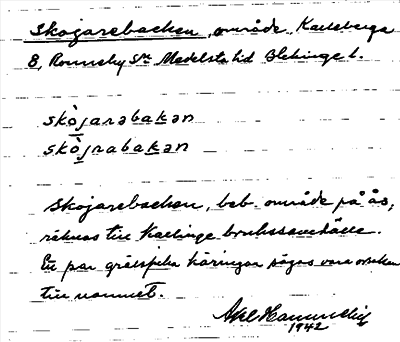 Skojarebacken, område, Karleberga
8, Ronneby Sn Medelsta hd Blekinge l.
skòjarabakan
skòjrabakan
Skojarebacken, beb. område på ås,
räknas till Kallinge brukssamhälle.
Ett par grälsjuka käringar sägas vara orsaken
till namnet.
1942